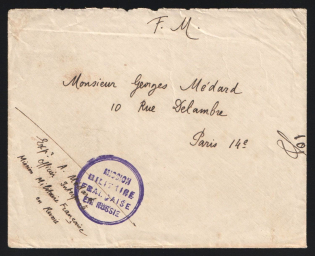 F. M.
Monsieur Georges Médard
10 Rue Delambre
Paris 14e
Expr A.
officier
Mission Militaire Française
en Russie
MISSION
MILITAIRE
FRANÇAISE
EN RUSSIE